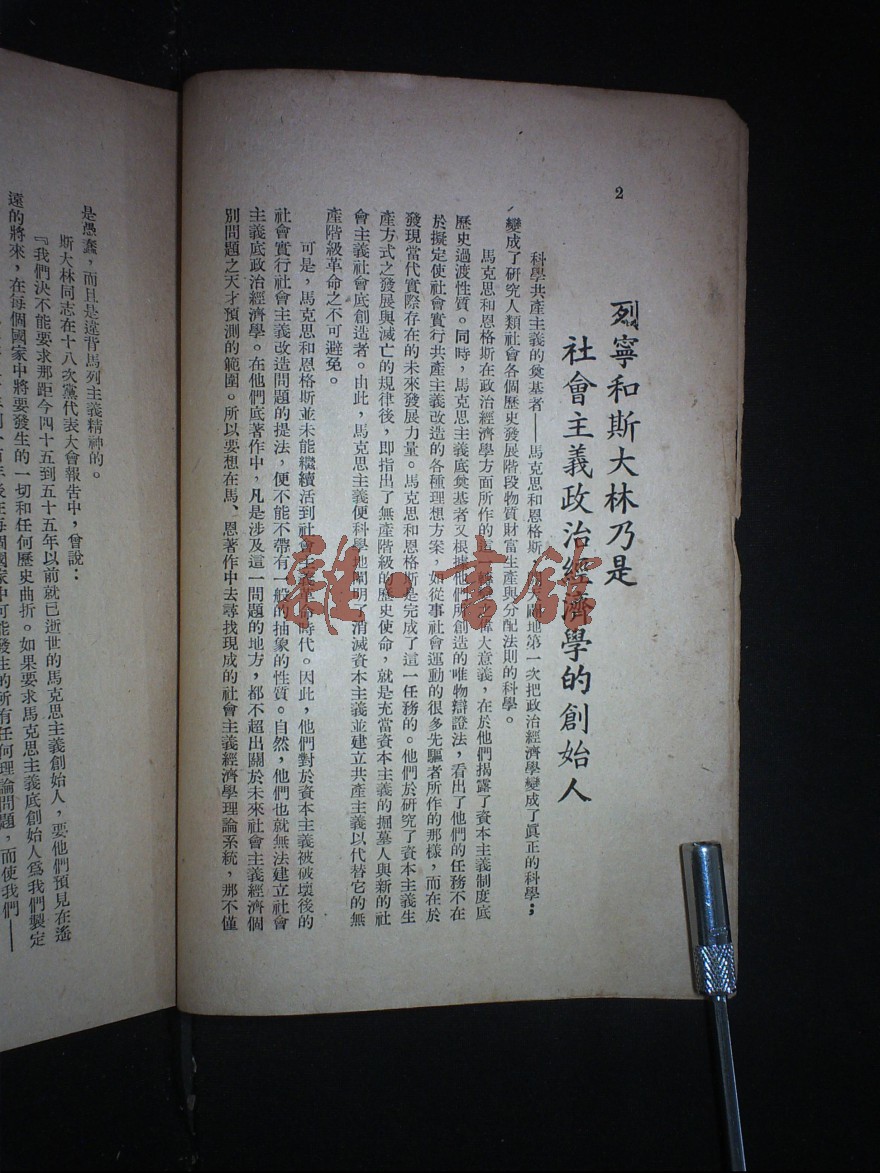 2
列寧和斯大林乃是
社會主義政治經濟學的創始人
科學共產主義的奠基者——馬克思和恩格斯，地第一次把政治經濟學變成了眞正的科學；
變成了研究人類社會各個歷史發展階段物質財富生產與分配法則的科學。
馬克思和恩格斯在政治經濟學方面所作的這偉大意義，在於他們揭露了資本主義制度底
歷史過渡性質。同時，馬克思主義底奠基者又根據他們所創造的唯物辯證法，看出了他們的任務不在
於擬定使社會實行共產主義改造的各種理想方案，如從事社會運動的很多先驅者所作的那樣，而在於
發現當代實際存在的未來發展力量。馬克思和恩格斯是完成了這一任務的。他們於研究了資本主義生
產方式之發展與滅亡的規律後，即指出了無產階級的歷史使命，就是充當資本主義的掘墓人與新的社
會主義社會底創造者。由此，馬克思主義便科學地闡明了消滅資本主義並建立共產主義以代替它的無
產階級革命之不可避免。
可是，馬克思和恩格斯並未能繼續活到社會主義革命時代。因此，他們對於資本主義被破壞後的
社會實行社會主義改造問題的提法，便不能不帶有一般的抽象的性質。自然，他們也就無法建立社會
主義底政治經濟學。在他們底著作中，凡是涉及這一問題的地方，都不超出關於未來社會主義經濟個
別問題之天才預測的範圍。所以要想在馬、恩著作中去尋找現成的社會主義經濟學理論系統，那不僅
是愚蠢，而且是違背馬列主義精神的。
斯大林同志在十八次黨代表大會報告中，曾說：
『我們決不能要求那距今四十五到五十五年以前就已逝世的馬克思主義創始人，要他們預見在遙
遠的將來，在每個國家中將要發生的一切和任何歷史曲折。如果要求馬克思主義底創始人爲我們製定
年後在每個國家中可能發生的所有任何理論問題，而使我們——
雅·書館